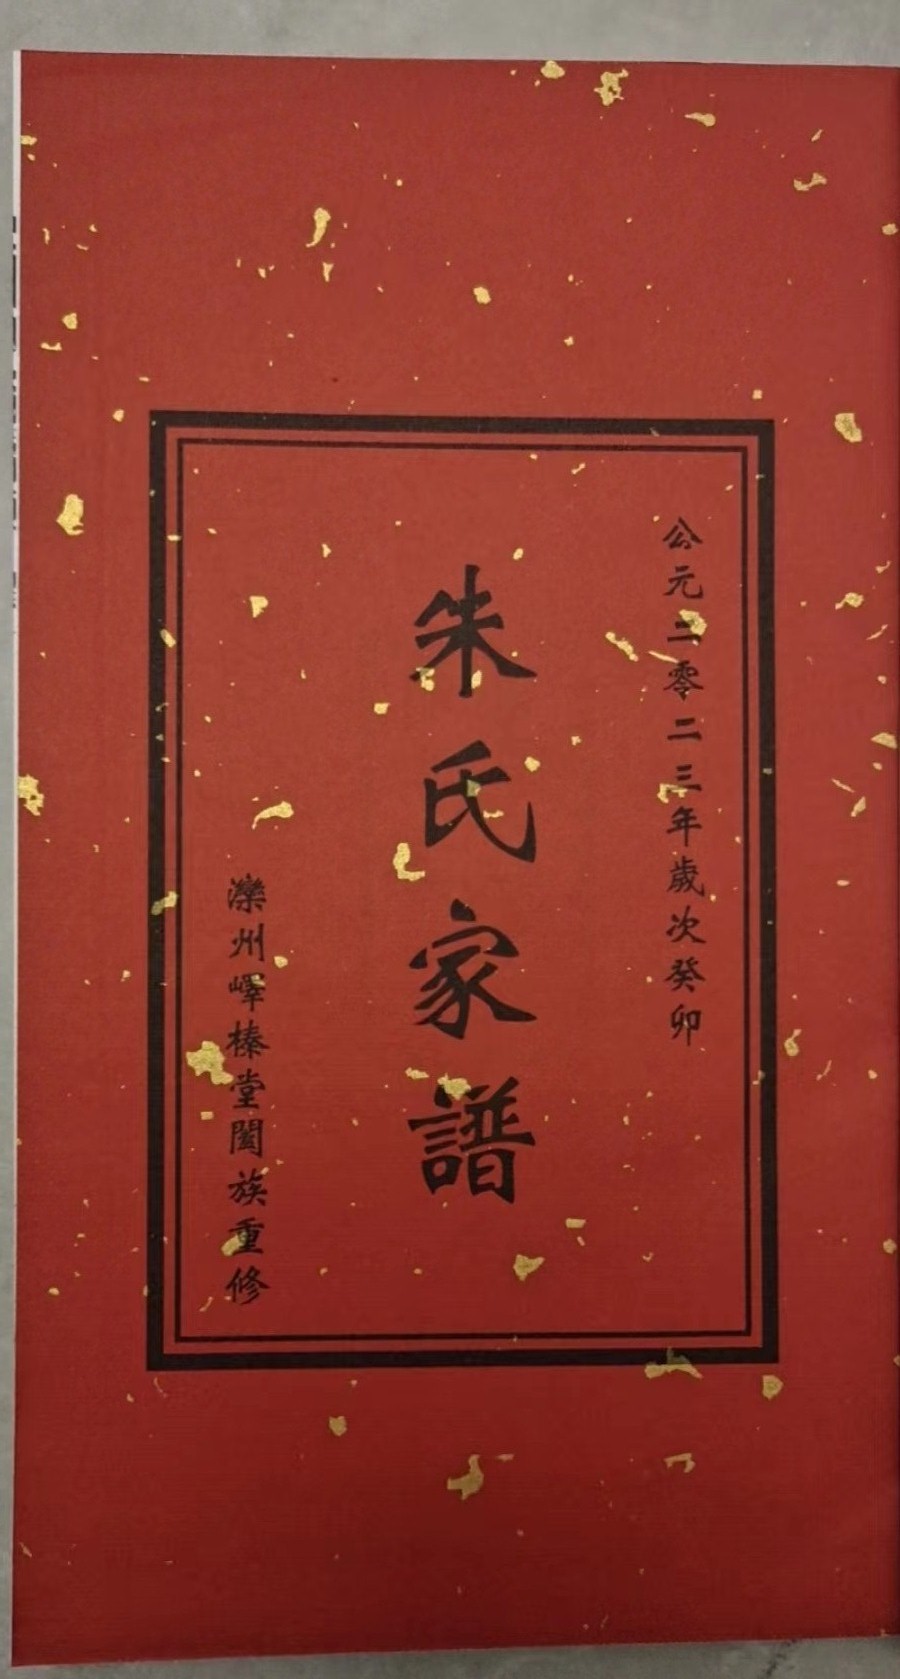 公元二零二三年歲次癸卯
朱氏家譜
灤州嶧榛堂闔族重修